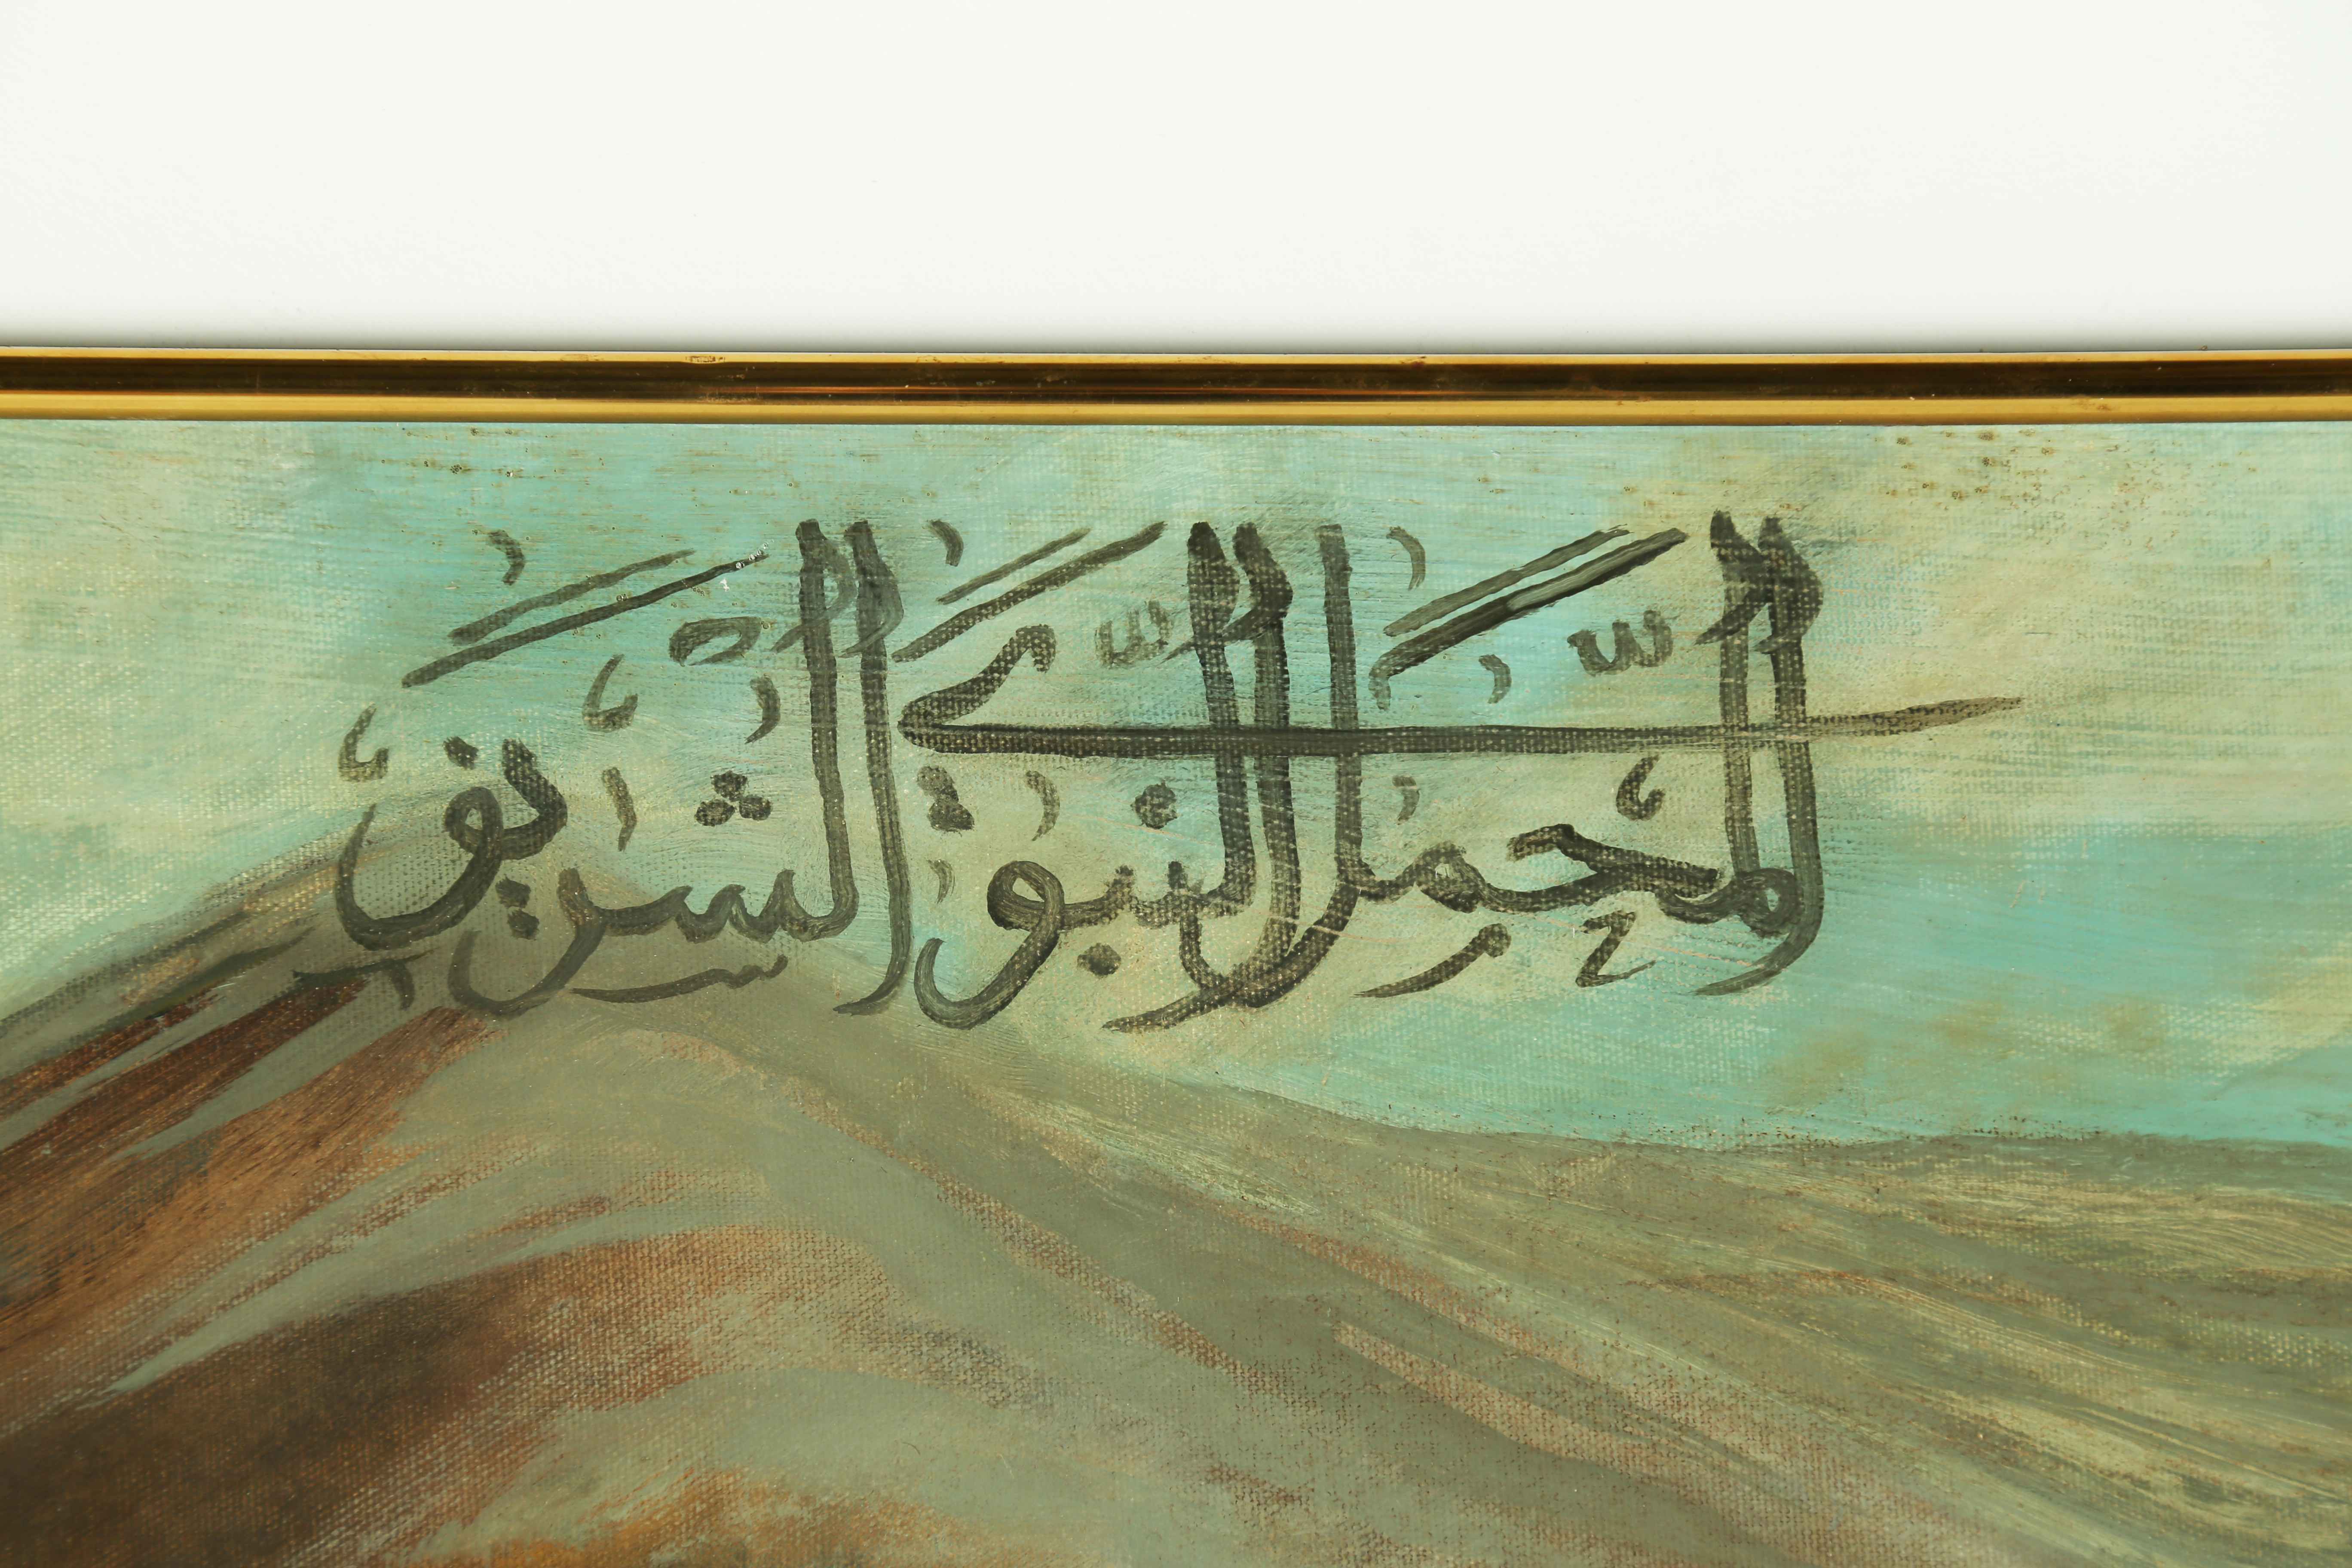 المحمل النبوي الشريف